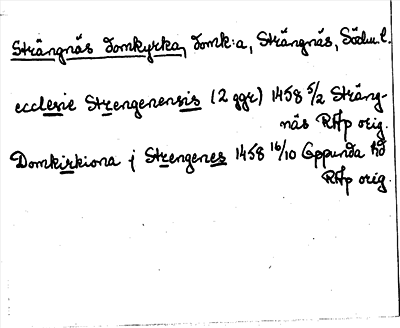 Strängnäs domkyrka, domk:a, Strängnäs, Södm.l.
ecclesie Strengenensis (2 ggr) 1458 5/2 Sträng-
näs RAp orig.
Domkirkiona j Strengenes 1458 16/10 Oppunda hd
RAp orig.